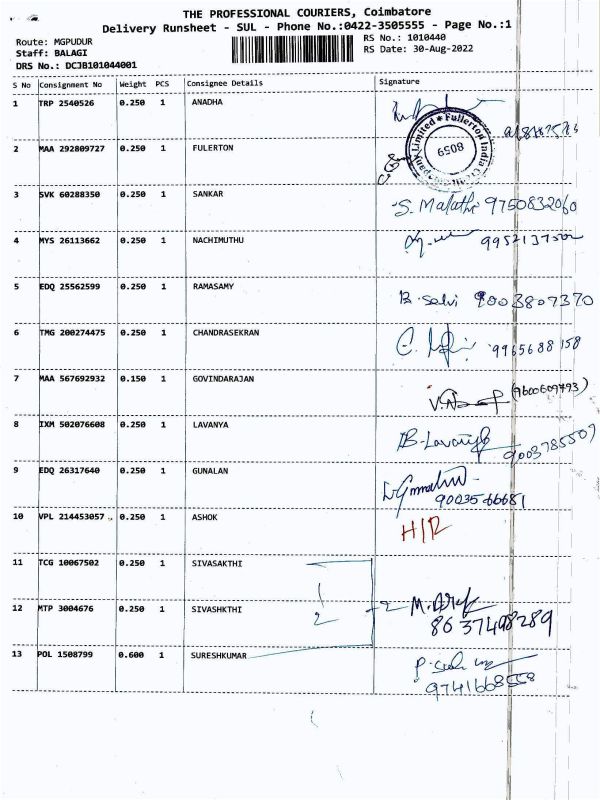 THE PROFESSIONAL COURIERS, Coimbatore
Delivery Runsheet - SUL - Phone No.:0422-3505555 - Page No.:1
Route: MGPUDUR
Staff: BALAGI
DRS No.: DCJB101044001
RS No.: 1010440
RS Date: 30-Aug-2022
S No Consignment No Weight PCS Consignee Details Signature
1 TRP 2540526 0.250 1 ANADHA
2 MAA 292809727 0.250 1 FULERTON
Fullerton India Limited 8059
3 SVK 60288350 0.250 1 SANKAR S. Malathi 9750832060
4 MYS 26113662 0.250 1 NACHIMUTHU
5 EDQ 25562599 0.250 1 RAMASAMY B. selvi 9003807370
6 TMG 200274475 0.250 1 CHANDRASEKRAN 9965688158
7 MAA 567692932 0.150 1 GOVINDARAJAN (9600609793)
8 IXM 502076608 0.250 1 LAVANYA B. Lavanya 9003785507
9 EDQ 26317640 0.250 1 GUNALAN 9003566681
10 VPL 214453057 0.250 1 ASHOK H/R
11 TCG 10067502 0.250 1 SIVASAKTHI
12 MTP 3004676 0.250 1 SIVASHKTHI 2 8637498289
13 POL 1508799 0.600 1 SURESHKUMAR 9741668558